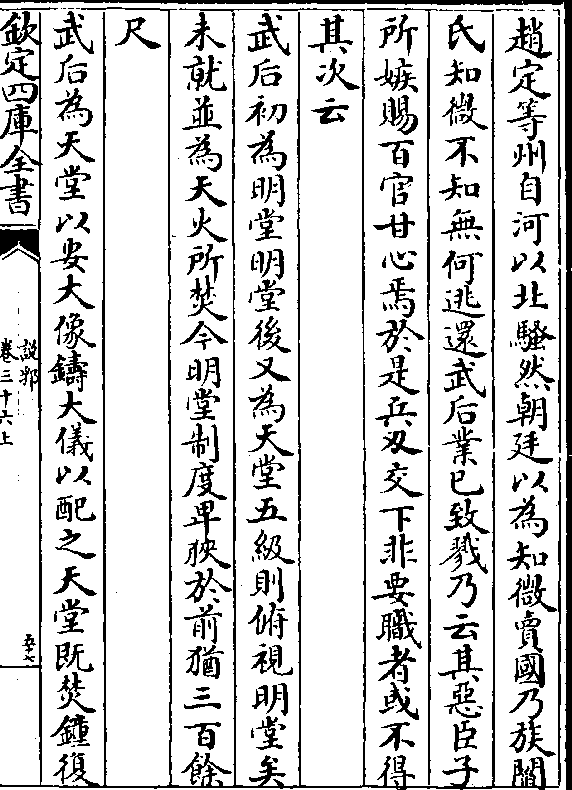 趙定等州自河以北騷然朝廷以為知微賣國乃族閻
氏知微不知無何逃還武后業已致戮乃云其惡臣子
所嫉賜百官甘心焉於是兵刃交下非要職者或不得
其次云
武后初為明堂明堂後又為天堂五級則俯視明堂矣
未就並為天火所焚今明堂制度卑狹於前猶三百餘
尺
武后為天堂以安大像鑄大儀以配之天堂既焚鐘復
欽定四庫全書
說郛
卷三十六上
五十七